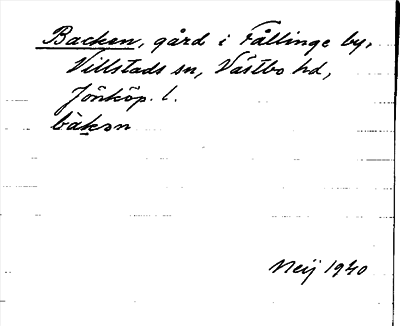 Backen, gård i Fållinge by,
Villstads sn, Västbo hd,
Jönköp. l.
bàkən
Meij 1940